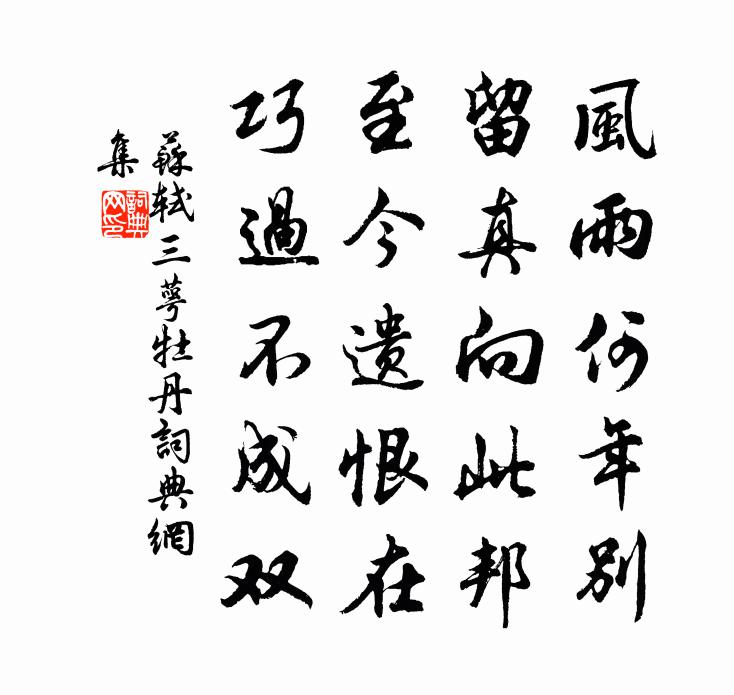 風雨何年別
留真向此邦
至今遗恨在
巧過不成双
蘇軾三萼牡丹詞典網
集
詞典網印